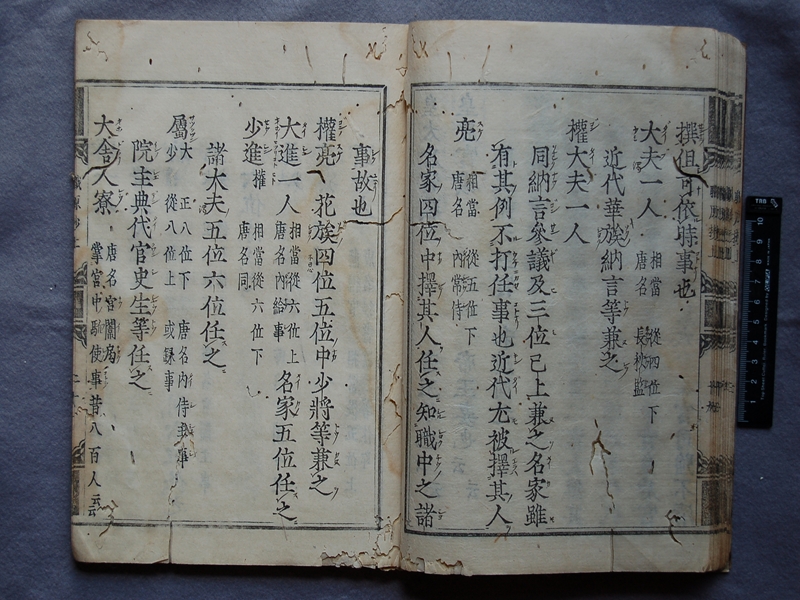 撰但可依時事也
大夫一人 相當 從四位下 唐名 長秋監
近代華族納言等兼之
權大夫一人
同納言參議及三位已上兼之名家雖
有其例不打任事也近代尤被擇其人
亮 相當 從五位下 唐名 内常侍
名家四位中擇其人任之知職中之諸
事故也
權亮 花族四位五位中少將等兼之
大進一人 相當從六位上 唐名内給事 名家五位任之
少進權 相當從六位下 唐名同
諸大夫五位六位任之
屬大少 正八位下 從八位上 唐名内侍 或錄事
院主典代官史生等任之
大舎人寮 唐名宮闈局 掌宮中駈使事昔八百人云云